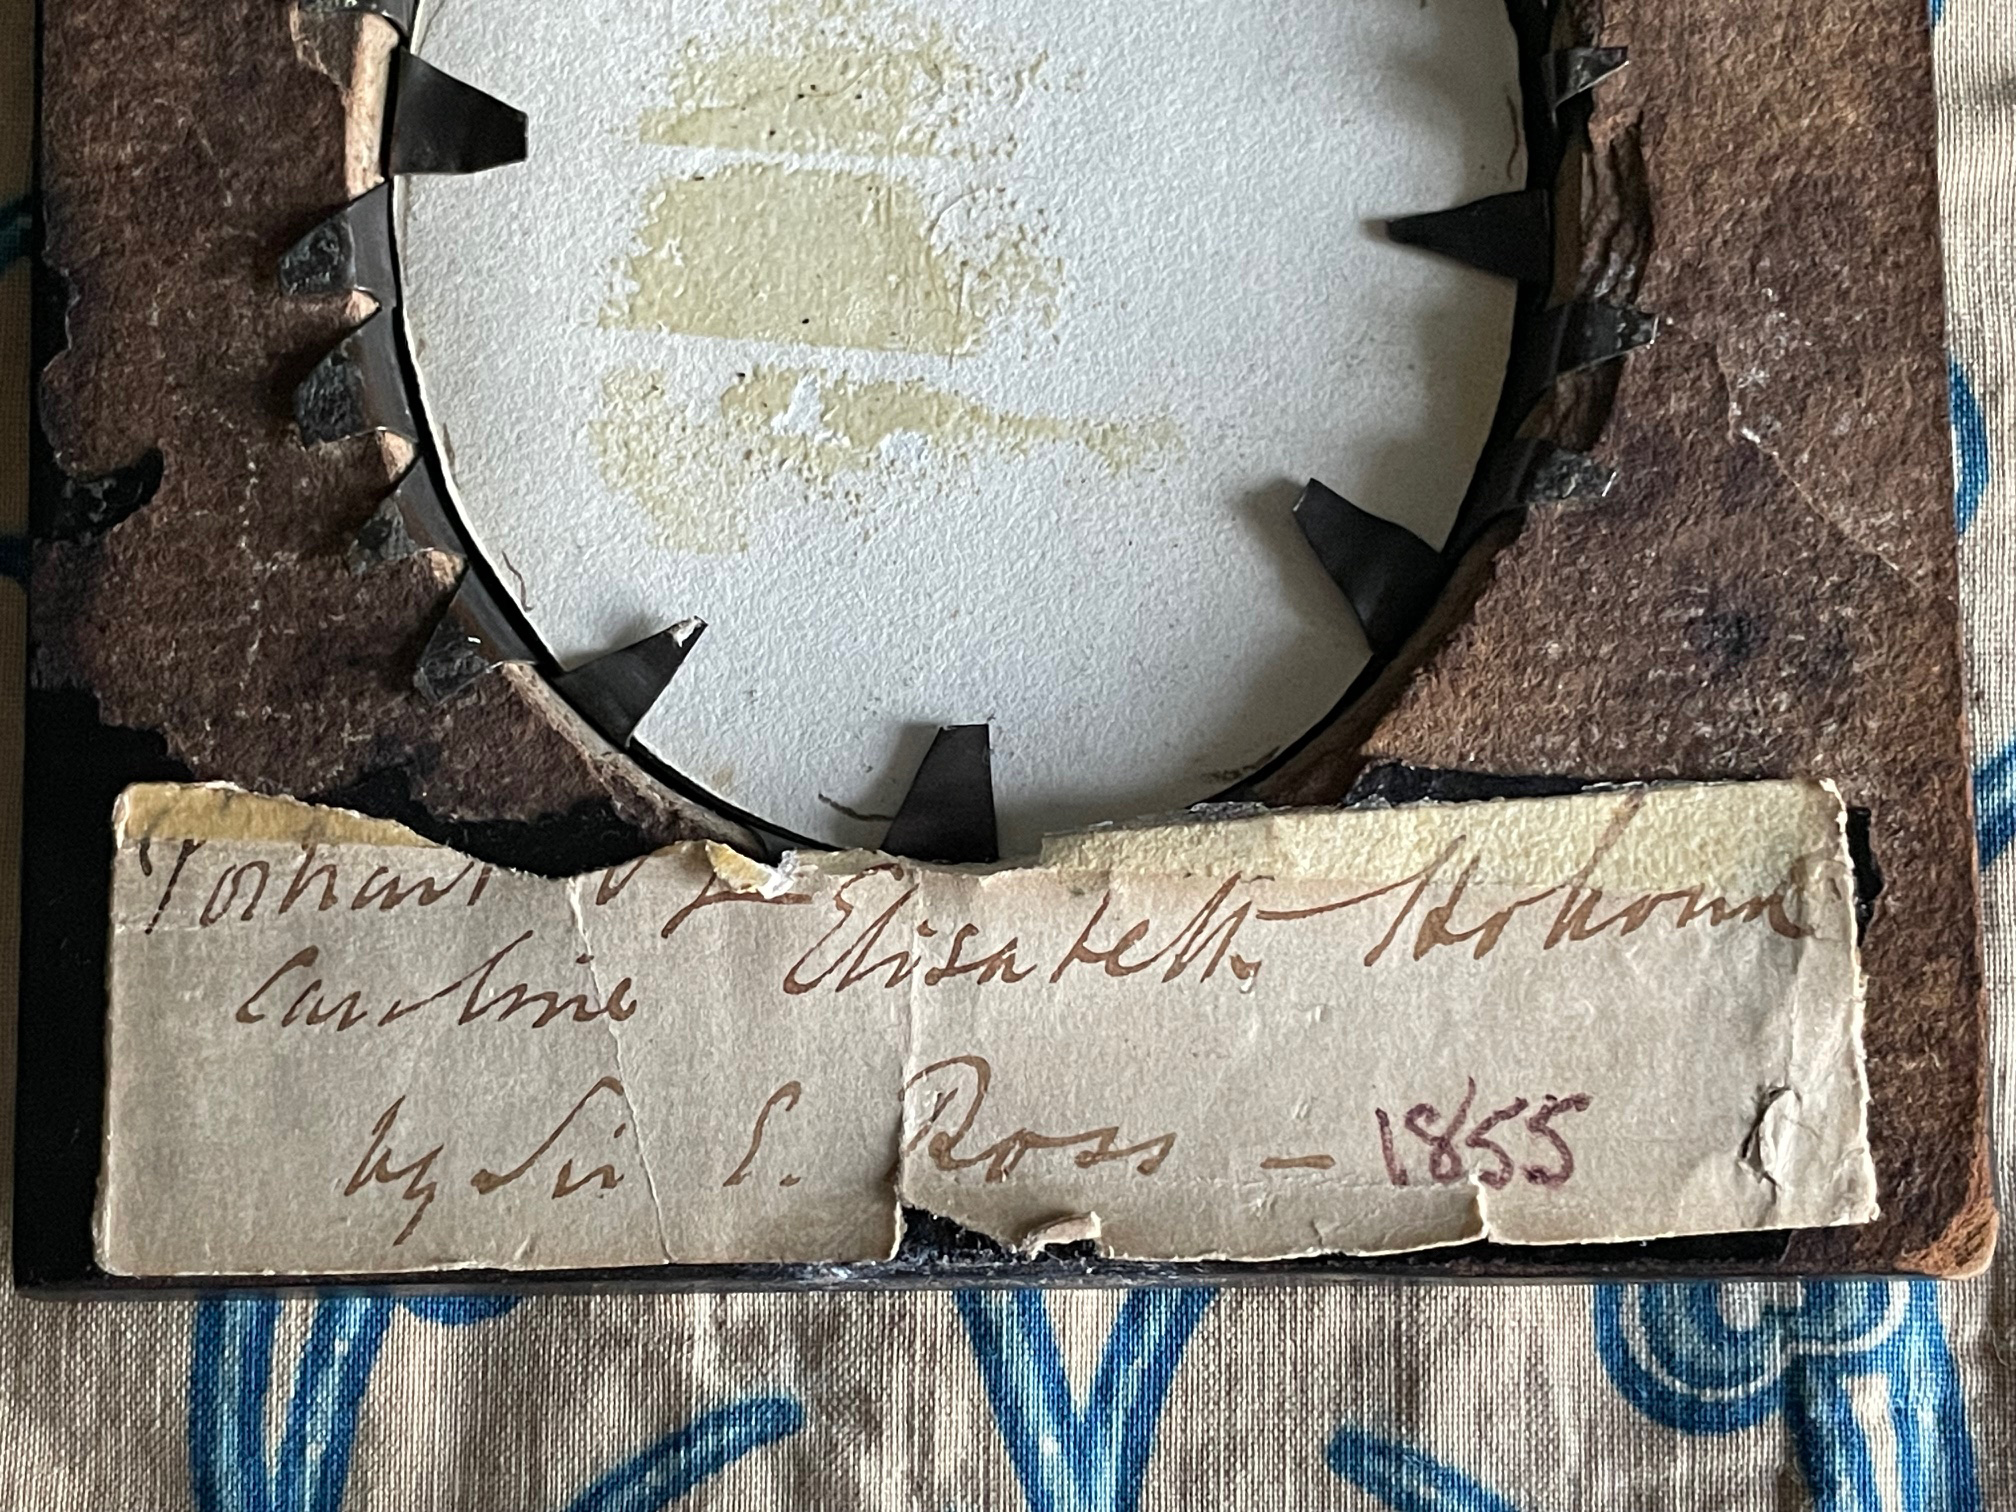 Portrait of Elisabeth
Caroline
by Sir Ross - 1855